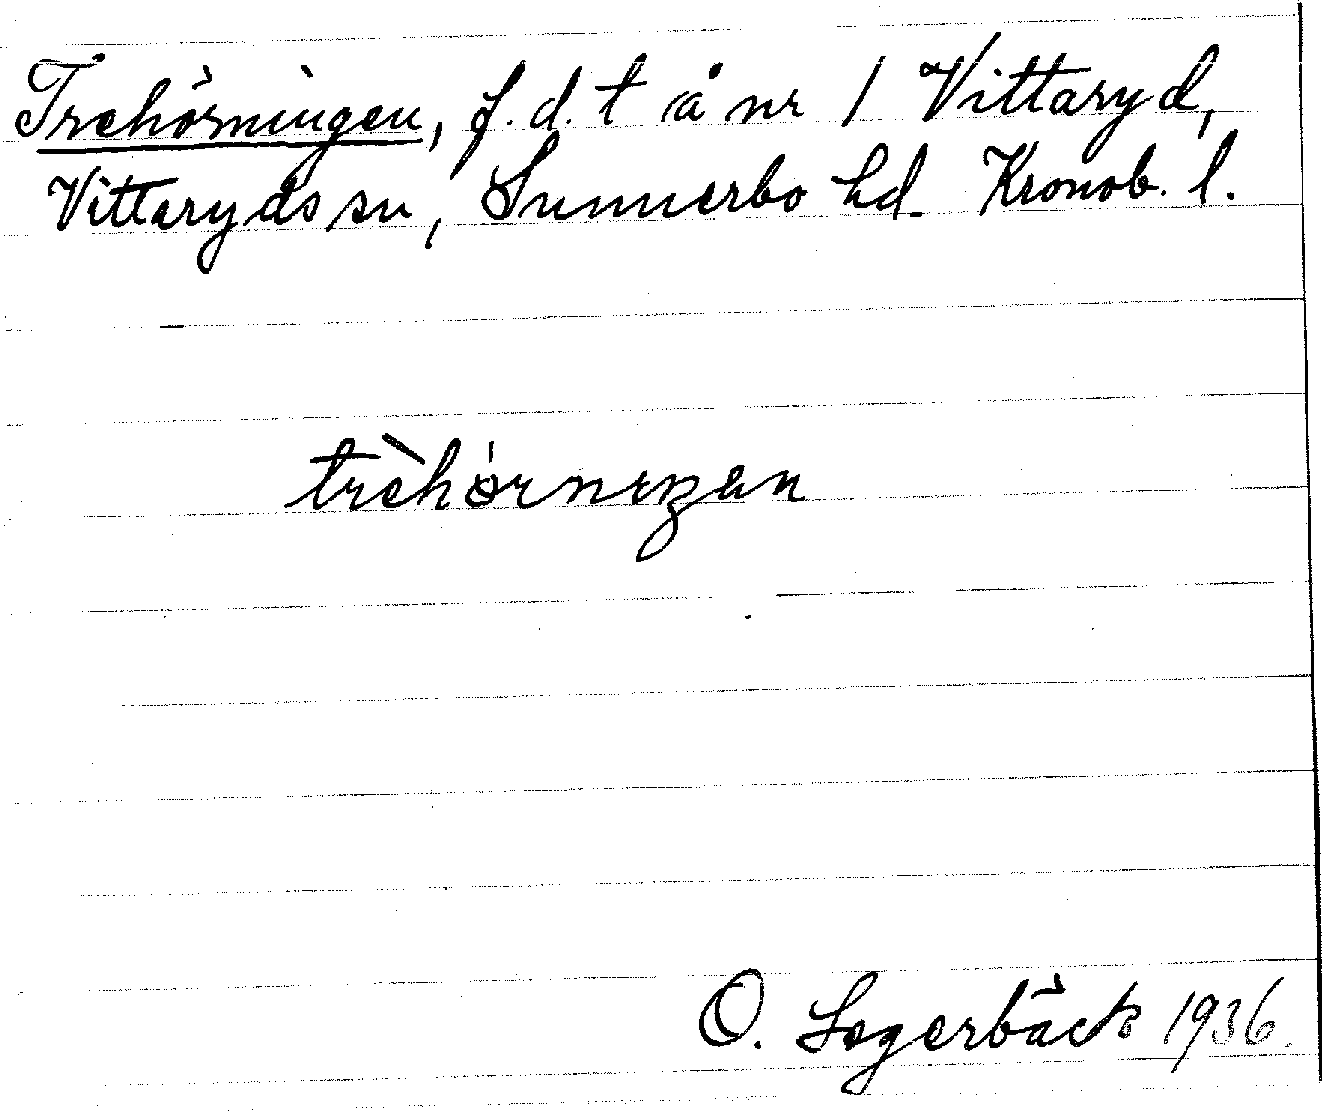 Trehörningen, f.d. t å nr 1 Vittaryd,
Vittaryds sn, Sunnerbo hd. Kronob. l.
trèhö́rnıŋen
O. Lagerbäck 1936.